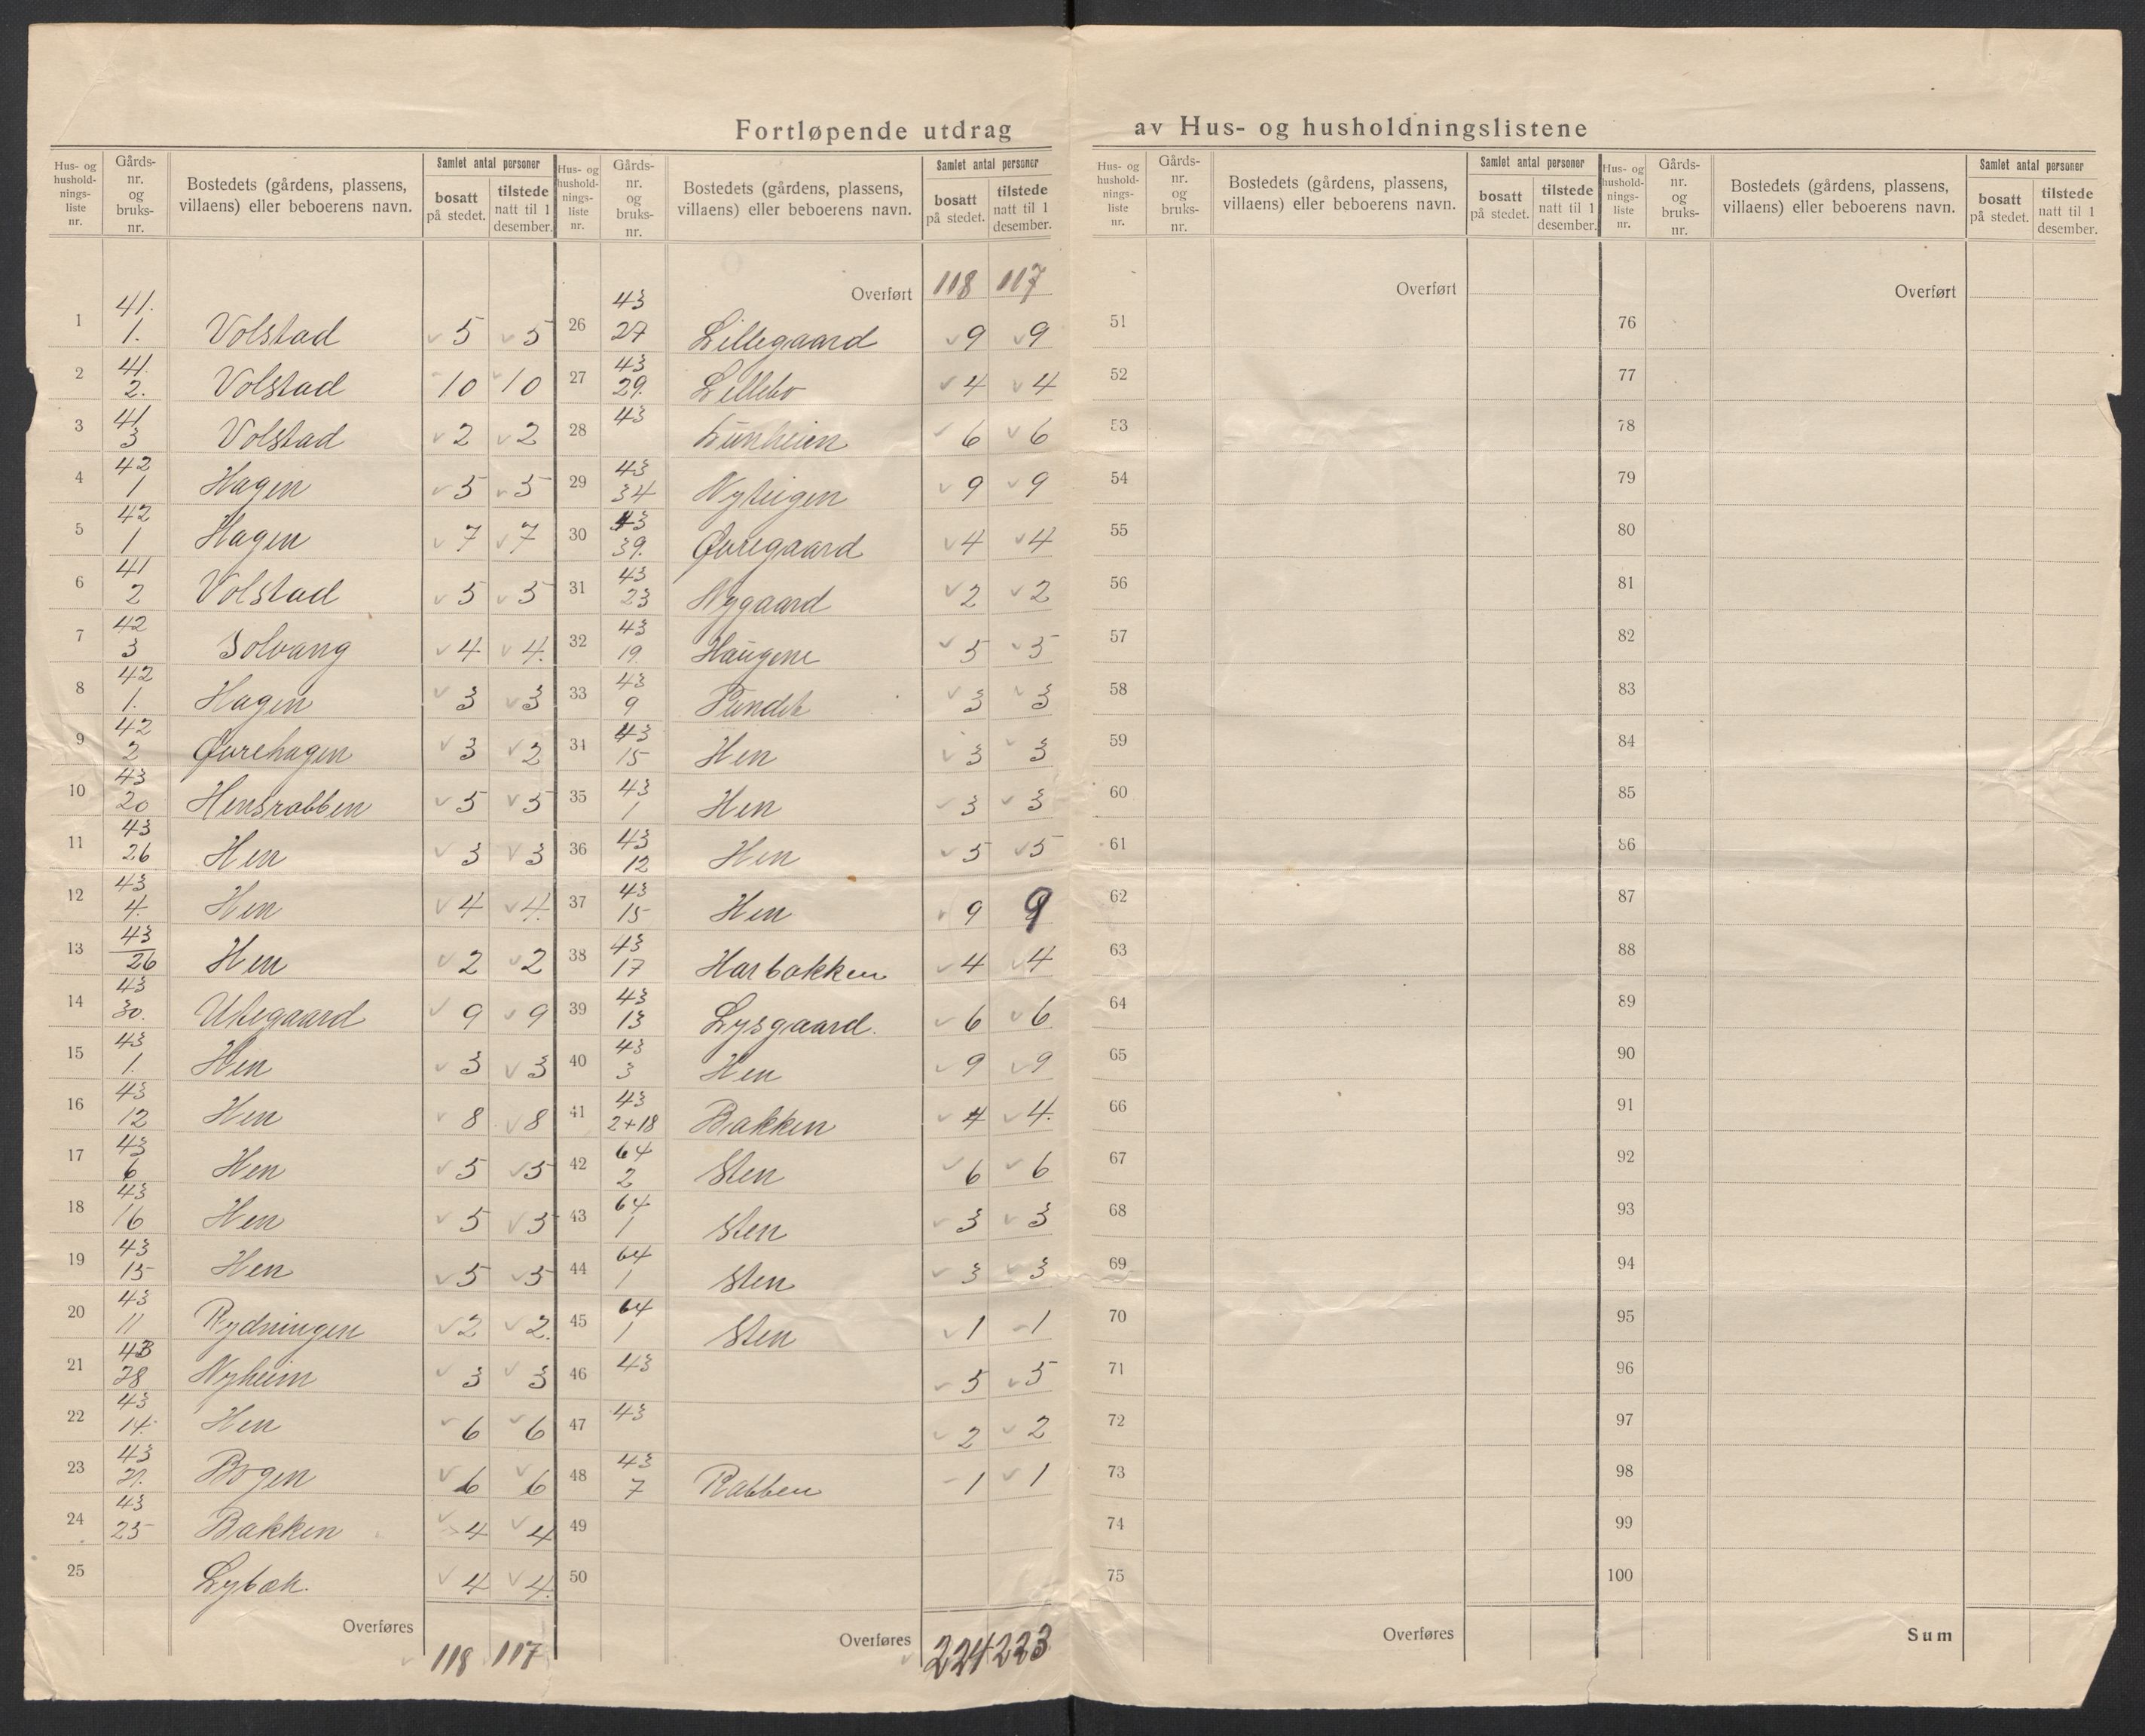 Fortløpende utdrag av Hus- og husholdningslistene
Hus- og hushold- nings- liste nr. | Gårds- nr. og bruks- nr. | Bostedets (gårdens, plassens, villaens) eller beboerens navn. | Samlet antal personer | bosatt på stedet. | tilstede natt til 1 desember.
1 41. 1. Volstad 5 5
2 41. 2. Volstad 10 10
3 41 3 Volstad 2 2
4 42 1 Hagen 5 5
5 42 1 Hagen 7 7
6 41 2 Volstad 5 5
7 42 3 Solvang 4 4.
8 42 1. Hagen 3 3
9 42 2 Øvrehagen 3 2
10 43 20 Hensrabben 5 5
11 43 26 Hen 3 3
12 43 4. Hen 4 4.
13 43 26 Hen 2 2
14 43 30. Utegaard 9 9
15 43 1. Hen 3 3
16 43 12 Hen 8 8
17 43 6 Hen 5 5
18 43 16 Hen 5 5
19 43 15 Hen 5 5
20 43 11 Rydningen 2 2.
21 43 Nyheim 3 3
22 43 14. Hen 6 6
23 43 Bogen 6 6
24 43 25 Bakken 4 4
25 Lybæk. 4 4.
Overføres 118 117
Hus- og hushold- nings- liste nr. | Gårds- nr. og bruks- nr. | Bostedets (gårdens, plassens, villaens) eller beboerens navn. | Samlet antal personer | bosatt på stedet. | tilstede natt til 1 desember.
Overført 118 117
26 43 27 Lillegaard 9 9
27 43 29. Lillebo 4 4
28 43 6 6
29 43 34 Nyteigen 9 9
30 43 39. Øvregaard 4 4
31 43 23 Nygaard 2 2
32 43 19. Haugene 5 5
33 43 9 3 3
34 43 15 Hen 3 3
35 43 1 Hen 3 3
36 43 12 Hen 5 5
37 43 15 Hen 9 9
38 43 17 Harbakken 4 4
39 43 13 Lysgaard. 6 6
40 43 3 Hen 9 9
41 43 2+18 Bakken 4 4.
42 64 2 Sten 6 6
43 64 1 Sten 3 3
44 64 1 Sten 3 3
45 64 1 Sten 1 1
46 43 5 5
47 43 2 2
48 43 7 Rabben 1 1
49
50
Overføres 224 223
Hus- og hushold- nings- liste nr. | Gårds- nr. og bruks- nr. | Bostedets (gårdens, plassens, villaens) eller beboerens navn. | Samlet antal personer | bosatt på stedet. | tilstede natt til 1 desember.
Overført
51
52
53
54
55
56
57
58
59
60
61
62
63
64
65
66
67
68
69
70
71
72
73
74
75
Overføres
Hus- og hushold- nings- liste nr. | Gårds- nr. og bruks- nr. | Bostedets (gårdens, plassens, villaens) eller beboerens navn. | Samlet antal personer | bosatt på stedet. | tilstede natt til 1 desember.
Overført
76
77
78
79
80
81
82
83
84
85
86
87
88
89
90
91
92
93
94
95
96
97
98
99
100
Sum